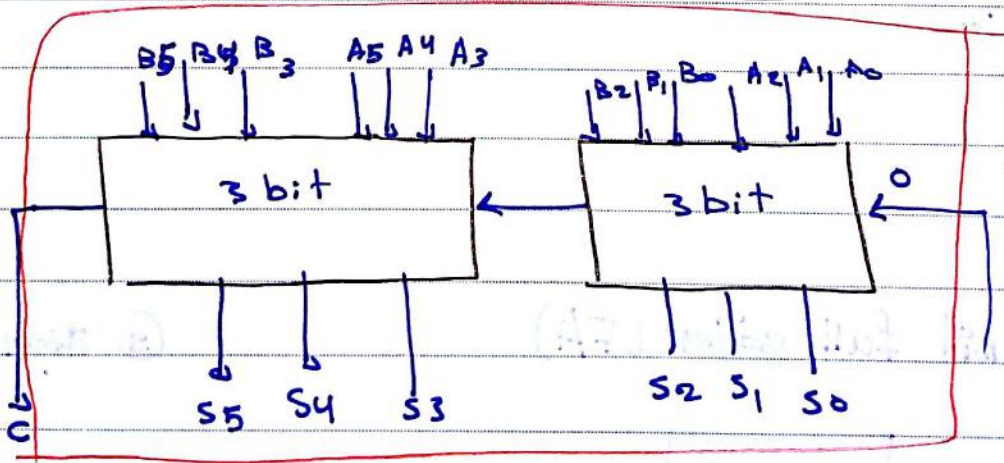 B5 B4 B3 A5 A4 A3 B2 B1 B0 A2 A1 A0
3 bit 3 bit 0
S5 S4 S3 S2 S1 S0
C